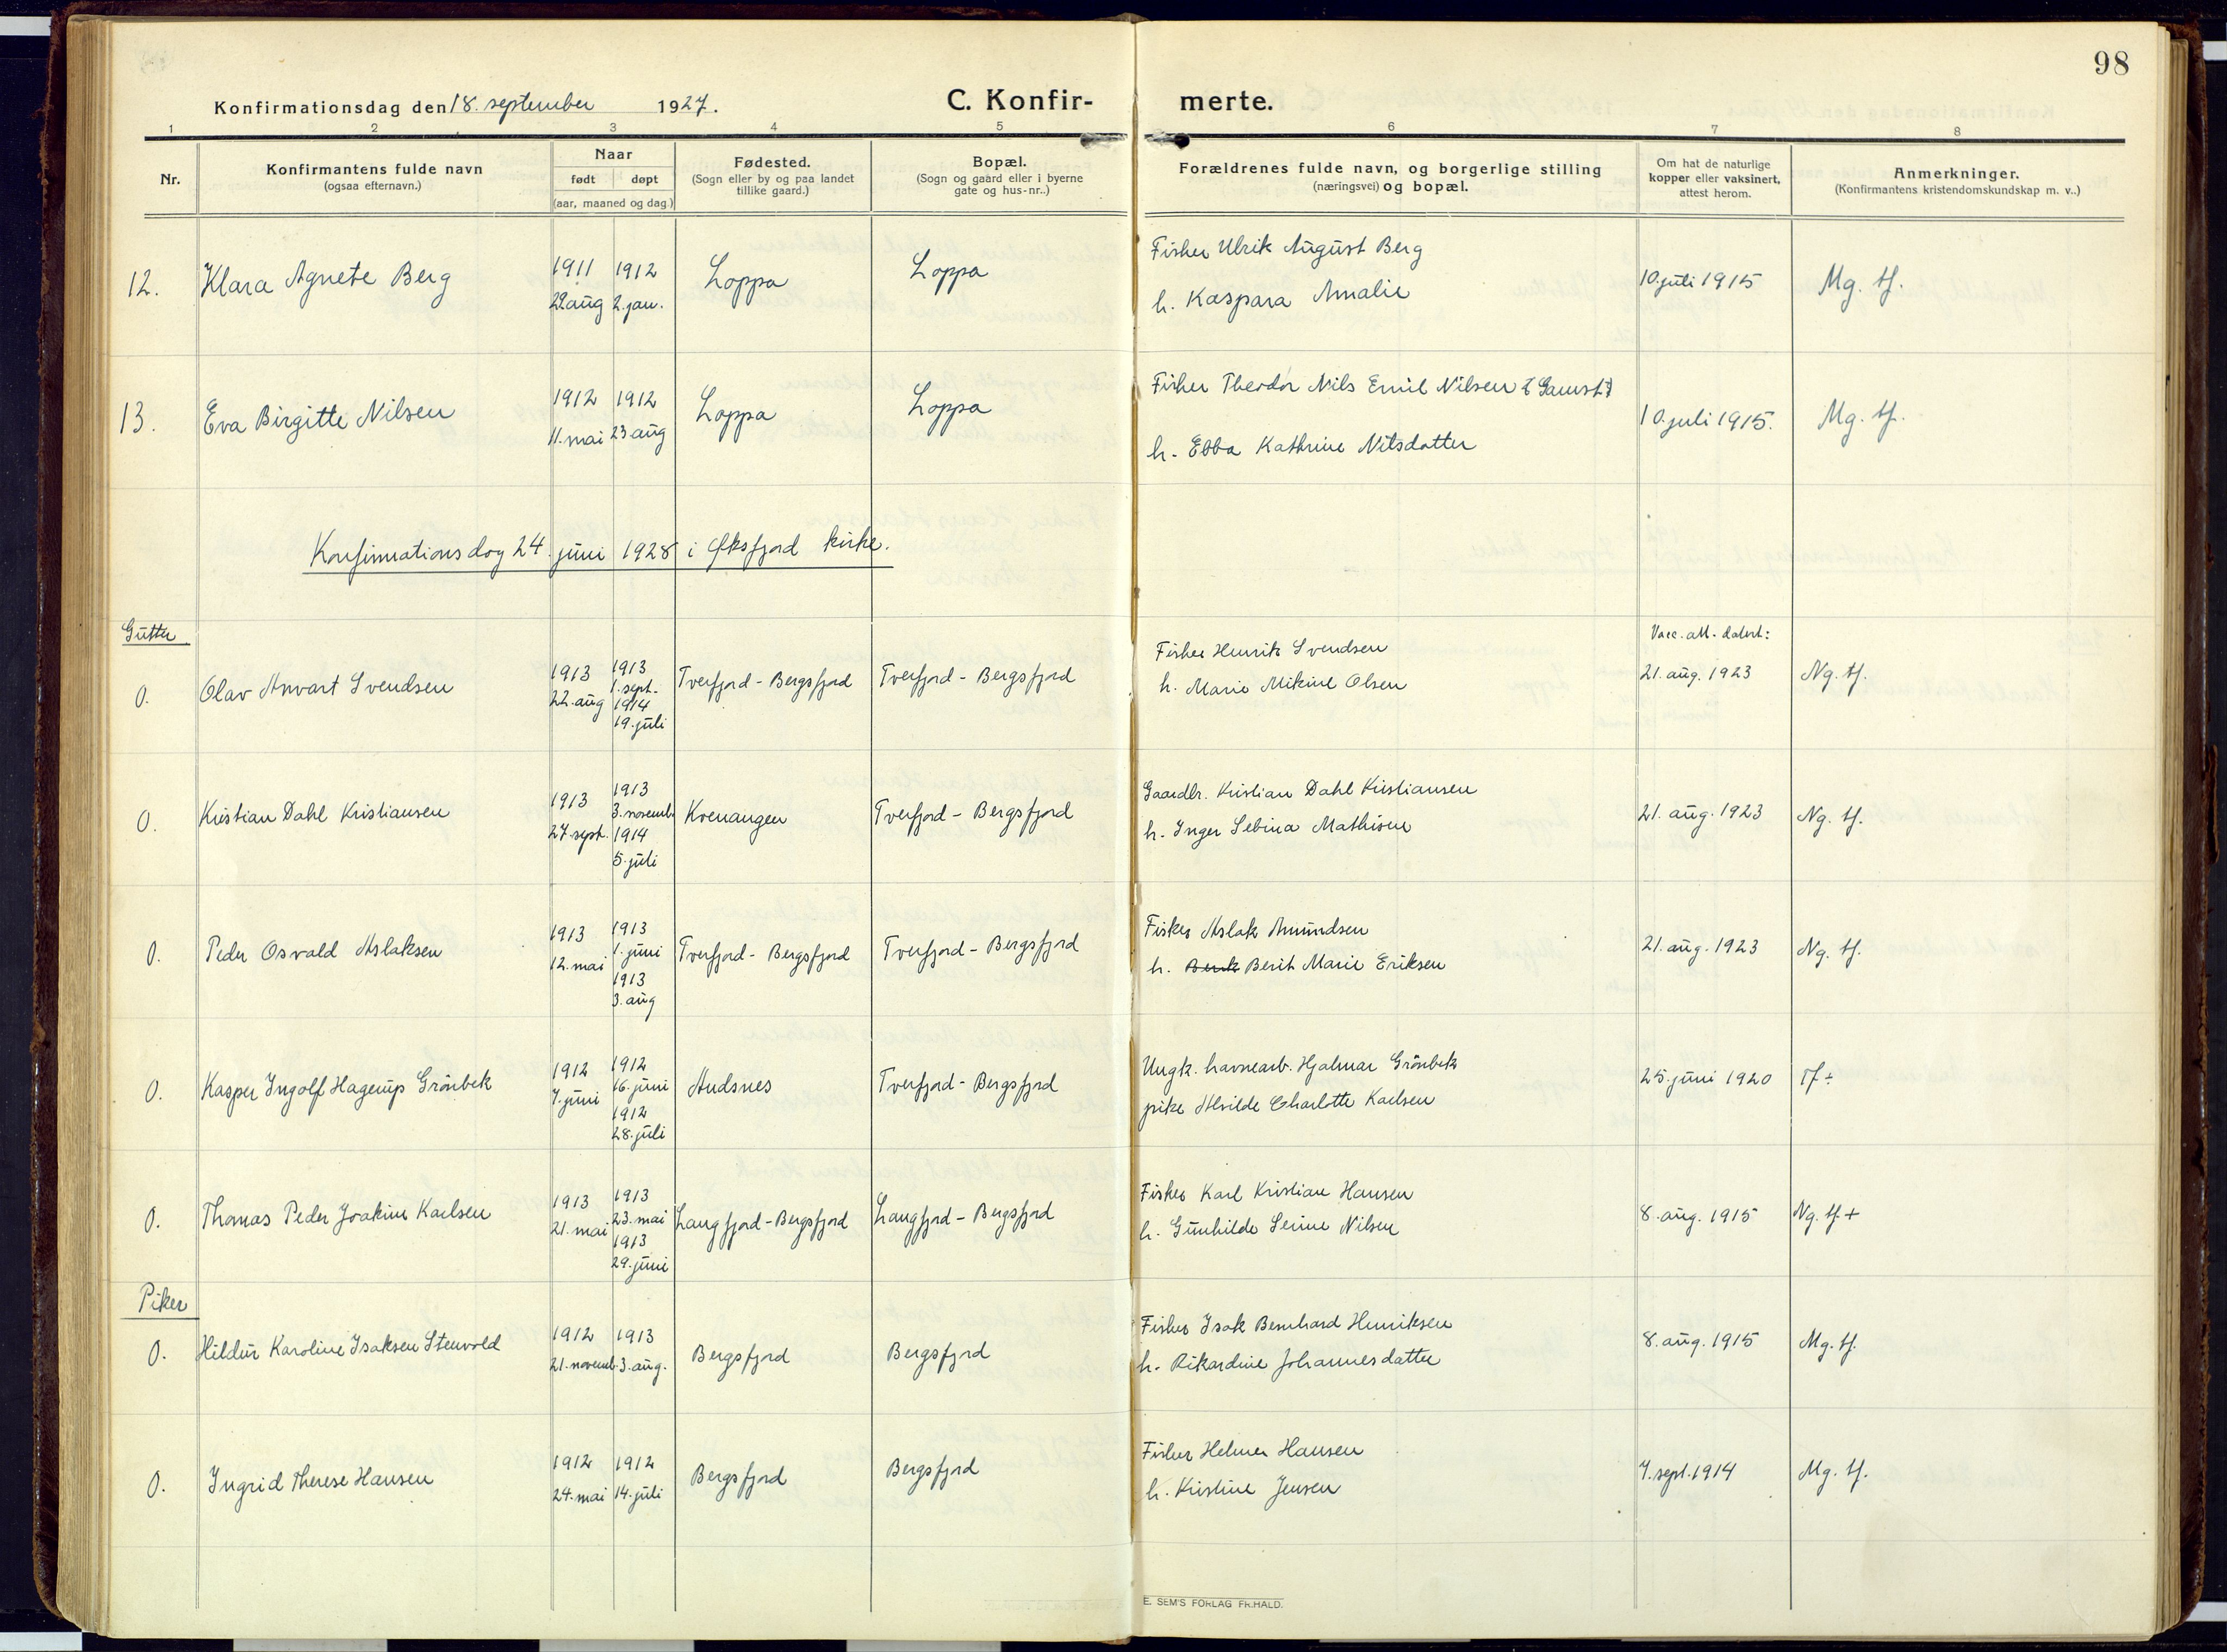 98
Konfirmationsdag den 18. september 1927.
C. Konfirmerte.
1 2 3 4 5 6 7 8
Nr.
Konfirmantens fulde navn
(ogsaa efternavn.)
Naar
født døpt
(aar, maaned og dag.)
Fødested.
(Sogn eller by og paa landet
tillike gaard.)
Bopæl.
(Sogn og gaard eller i byerne
gate og hus-nr..)
Forældrenes fulde navn, og borgerlige stilling
(næringsvei) og bopæl.
Om hat de naturlige
kopper eller vaksinert,
attest herom.
Anmerkninger.
(Konfirmantens kristendomskundskap m. v..)
12. Klara Agnete Berg
1911 1912
29. aug 2. jan.
Loppa Loppa
Fisker Ulrik August Berg
h. Kaspara Amalie
10. juli 1915 Mg. tf.
13. Eva Birgitte Nilsen
1912 1912
11. mai 23 aug
Loppa Loppa
Fisker Theodor Nils Emil Nilsen
h. Ebba Kathrine Nilsdatter
10. juli 1915. Mg. tf.
Konfirmationsdag 24. juni 1928 i Øksfjord kirke.
Gutter
0. Olav Anvart Svendsen
1913 1913
22. aug 1. sept.
1914
19. juli
Tverfjord - Bergsfjord Tverfjord - Bergsfjord
Fisker Henrik Svendsen
h. Marie Mikine Olsen
Vacc. att. datert:
21. aug. 1923 Ng. tf.
0. Kristian Dahl Kristiansen
1913 1913
27. sept. 3. novemb.
1914
5. juli
Kvenangen Tverfjord - Bergsfjord
Gaardbr. Kristian Dahl Kristiansen
h. Inger Sebina Mathisen
21. aug. 1923 Ng. tf.
0. Peder Osvald Aslaksen
1913 1913
12. mai 1. juni
1913
3. aug
Tverfjord - Bergsfjord Tverfjord - Bergsfjord
Fisker Aslak Amundsen
h. Berit Marie Eriksen
21. aug. 1923 Ng. tf.
0. Kasper Ingolf Hagerup Grönbek
1912 1912
7. juni 16. juni
1912
28. juli
Andsnes Tverfjord - Bergsfjord
Ungk. havnearb. Hjalmar Grönbek
pike Alvilde Charlotte Karlsen
25. juni 1920 Tf ÷
0. Thomas Peder Joakim Karlsen
1913 1913
21. mai 23. mai
1913
29. juni
Langfjord - Bergsfjord Langfjord - Bergsfjord
Fisker Karl Kristian Hansen
h. Gunhilde Serine Nilsen
8. aug. 1915 Ng. tf. +
Piker
0. Hildur Karoline Isaksen Stenvold
1912 1913
21. novemb. 3. aug.
Bergsfjord Bergsfjord
Fisker Isak Bernhard Henriksen
h. Rikardine Johannesdatter
8. aug. 1915 Mg. tf.
0. Ingrid Therese Hansen
1912 1912
24. mai 14. juli
Bergsfjord Bergsfjord
Fisker Helmer Hansen
h. Kristine Jensen
7. sept. 1914 Mg. tf.
E. SEM'S FORLAG FR.HALD.